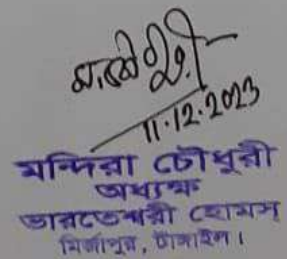 11.12.2023
মন্দিরা চৌধুরী
অধ্যক্ষ
ভারতেশ্বরী হোমস্
মির্জাপুর, টাঙ্গাইল।